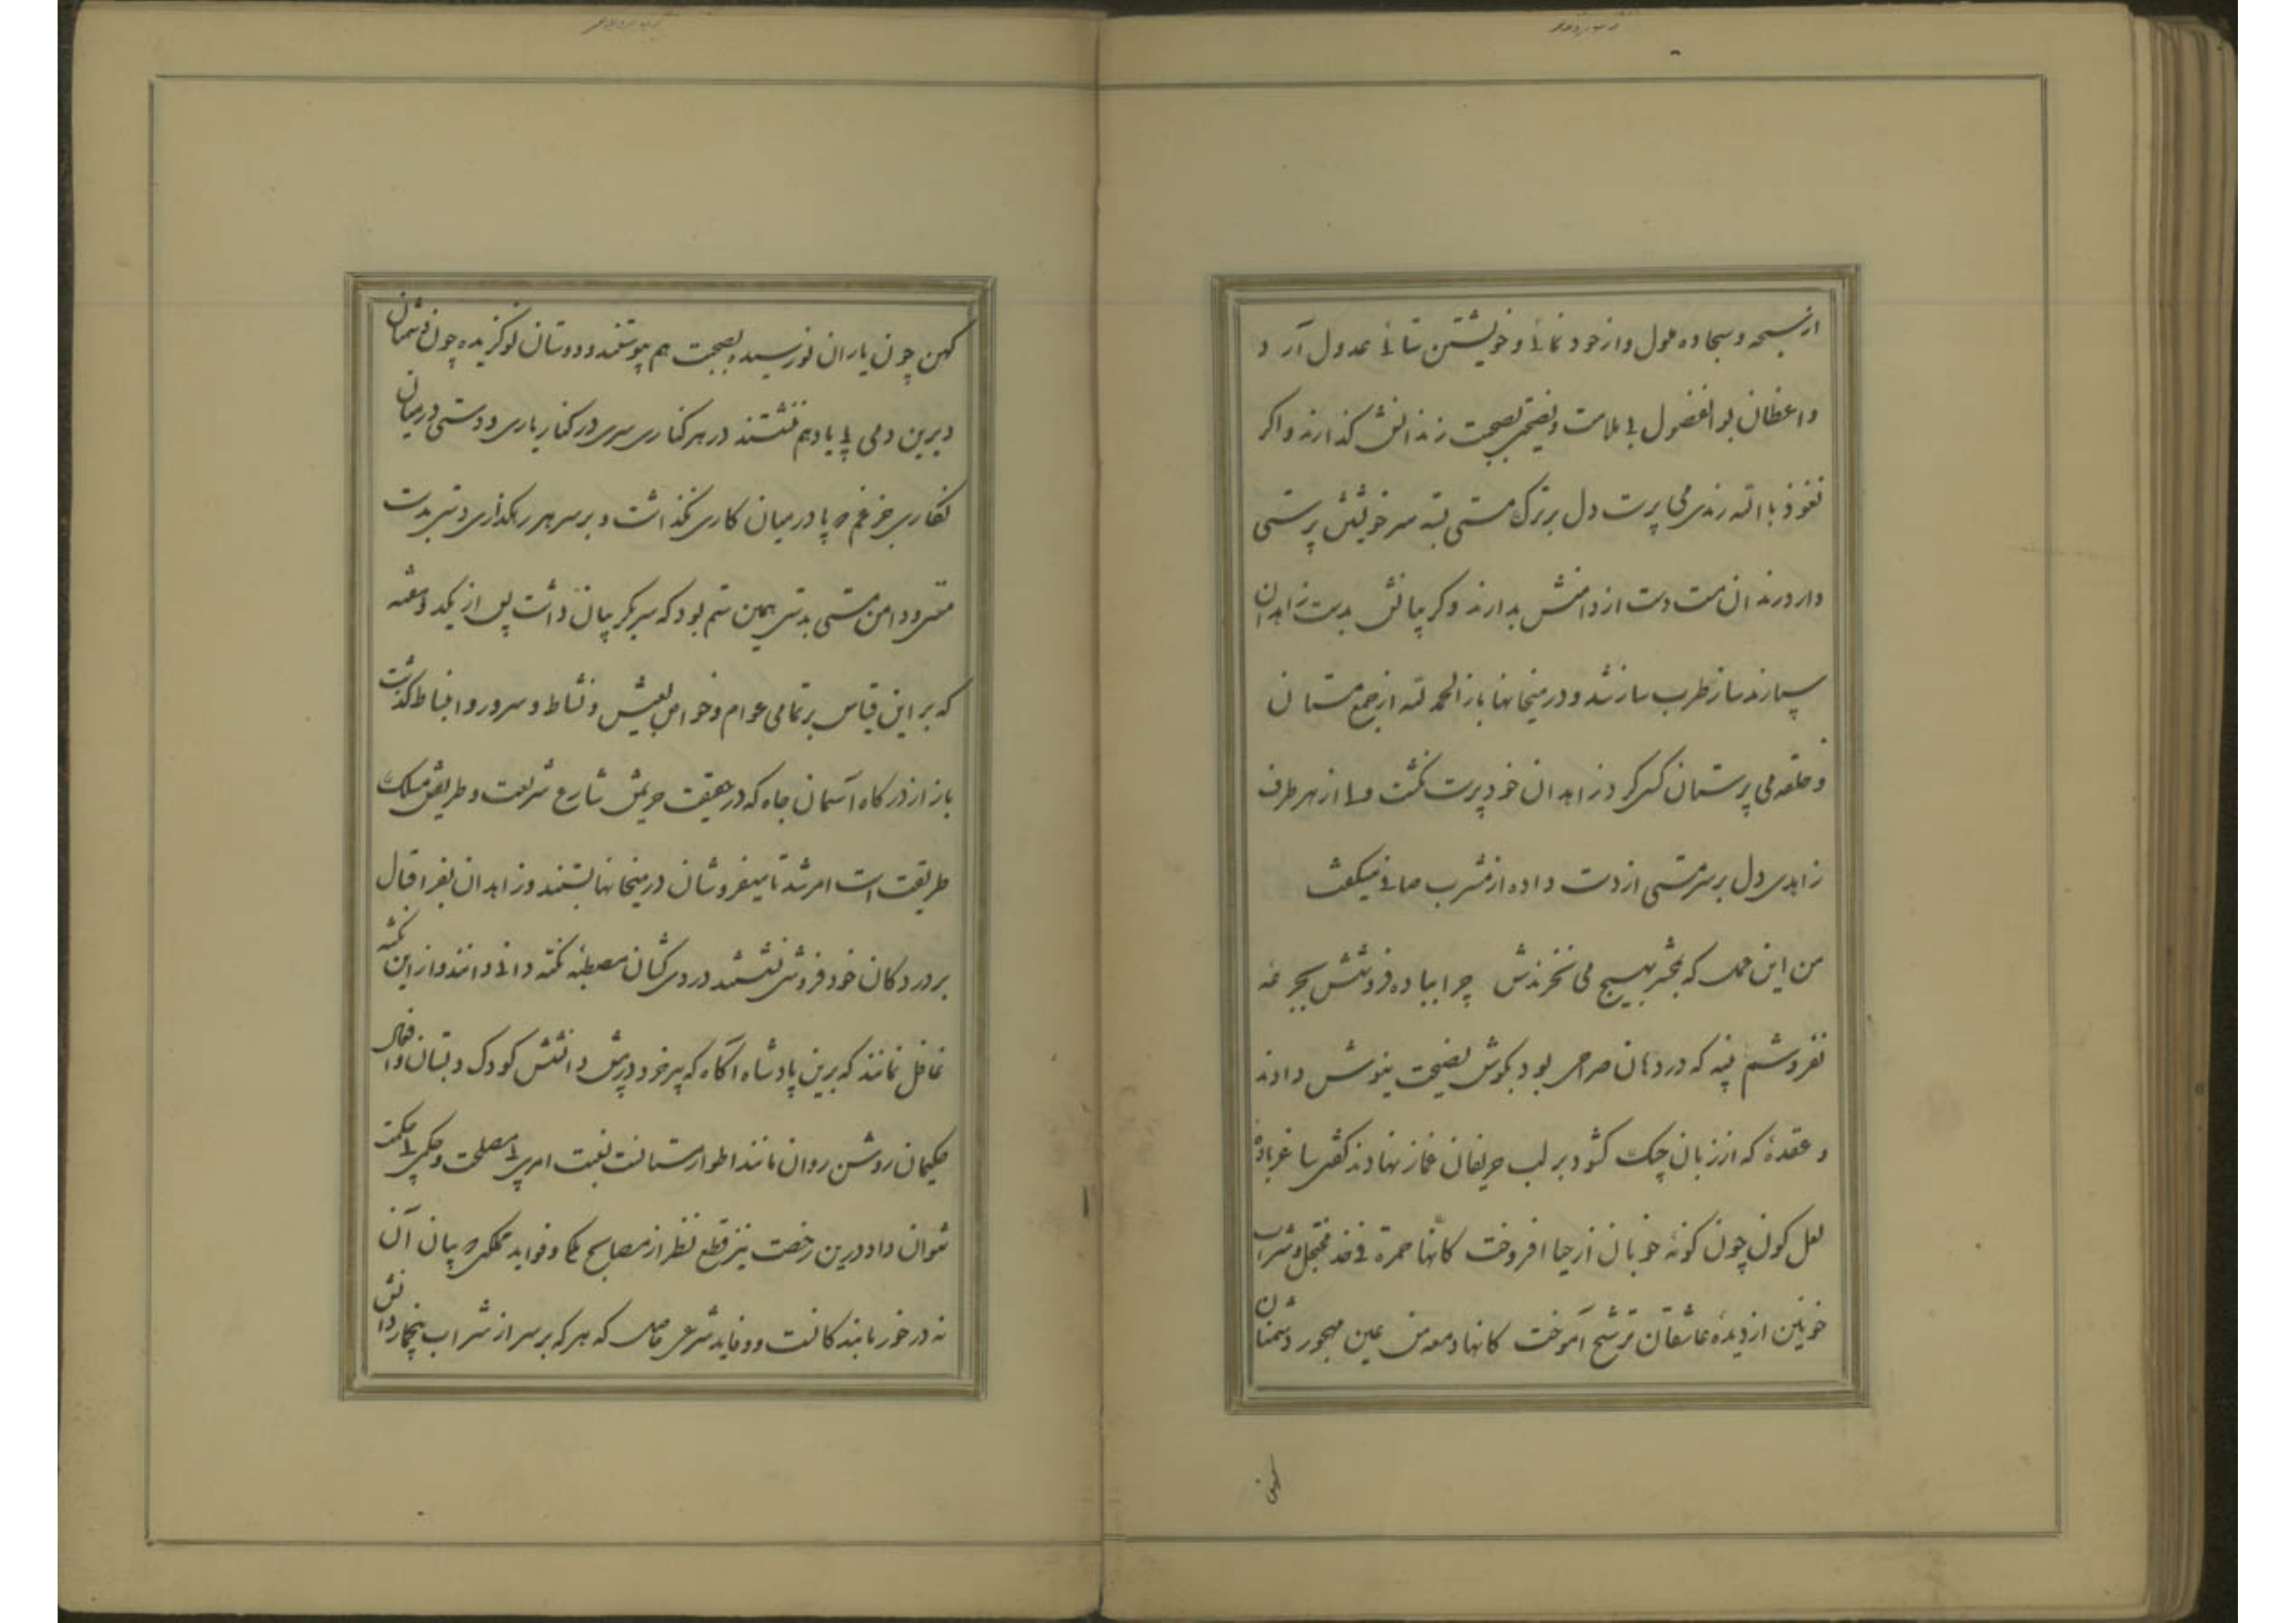 از سبحه و سجاده ملول و از خود نمائی و خویشتن ستائی عدول آرد و
واعظان بوالفضول بی ملامت و نصیحتی بصحبت رندانش گذارند و اگر
نعوذ باالله رندی می پرست دل بر ترک مستی بسته سر خویشتن پرستی
دارد رندان مست دست از دامنش بدارند و گریبانش بدست زاهدان
سپارند ساز طرب ساز شد و در میخانها باز الحمد لله از جمع مستان
و حلقه می پرستان کسی کرد زاهدان خود پرست نگشت ولی از هر طرف
زاهدی دل بر سر مستی از دست داده از مشرب صافی میگفت
من این عمل که بحشر بهیچ می نخرندش چرا بباده فروشش بجرعه
نفروشم پنبه که در دهان صراحی بود بگوش نصیحت نیوش دادند
و عقدهٔ که از زبان چنگ گشود بر لب حریفان غماز نهادند گفتی ساغر باده
لعل گون چون گونه خوبان از حیا افروخت کانها حمرة فی خد مخجل و شراب
خونین از دیدهٔ عاشقان ترشح آموخت کانها دمعه من عین مهجور دشمنان
کهن
کهن چون یاران نو رسیده بصحبت هم پیوستند و دوستان نو گزیده چون دشمنان
دیرین دمی بی یاد هم ننشستند در هر کناری سری در کنار یاری و دستی در میان
نگاری جز غم پا در میان کاری نگذاشت و بر سر هر رهگذاری دستی بدست
مستی و دامن مستی بدستی همین ستم بود که سر بگریبان داشت پس از یکدو هفته
که بر این قیاس بر تمامی عوام و خواص بعیش و نشاط و سرور و انبساط گذشت
باز از درگاه آسمان جاه که در حقیقت حریمش شارع شریعت و طریقش مسلک
طریقت است امر شد تا میفروشان در میخانها ببستند و زاهدان بفر اقبال
بر در دکان خود فروشی نشستند دردی کشان مصطبه نکته دانی دانند و از این نکته
غافل نمانند که برین پادشاه آگاه که پیر خرد در پیش دانشش کودک دبستان
حکیمان روشن روان مانند اطوار مستانست نسبت امری بی مصلحت و حکمی بی حکمت
نتوان داد درین رخصت نیز قطع نظر از مصالح ملکی و فواید مملکی که بیان آن
نه در خور ما بندگانست دو فایده شرعی حاصل که هر که بر سر از شراب پنجهار دانش